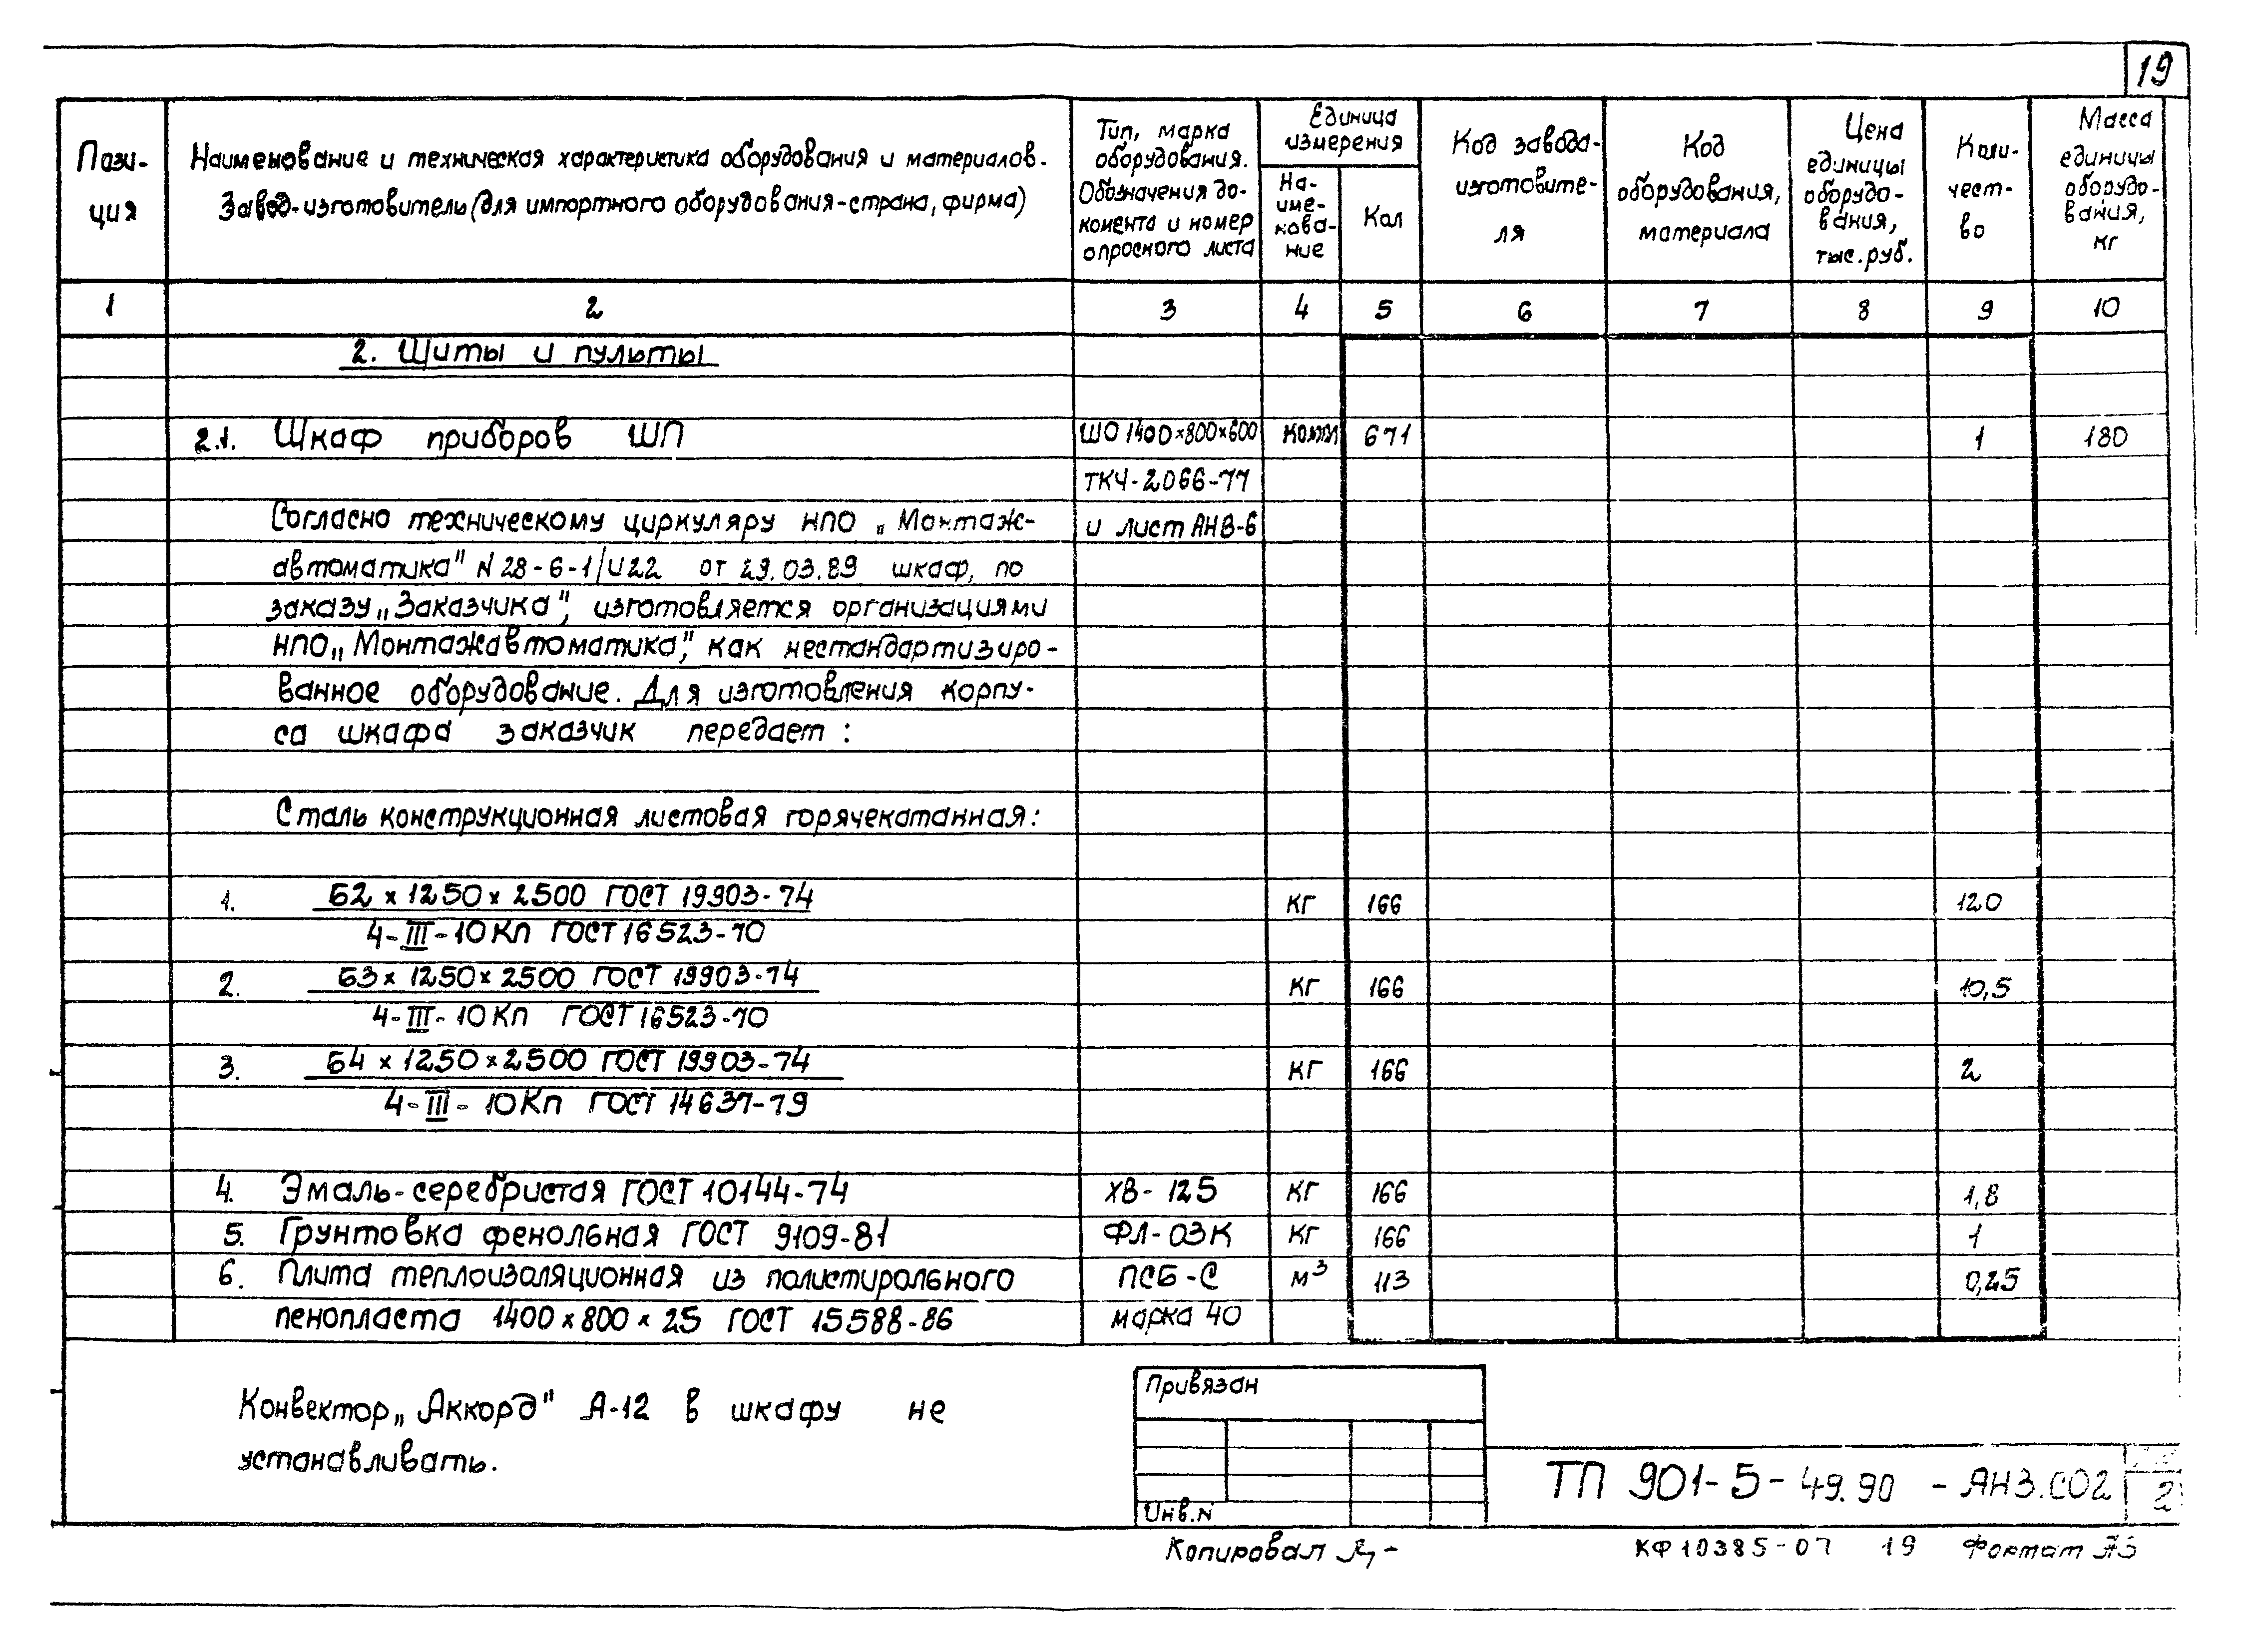 19
Пози-
ция
Наименование и техническая характеристика оборудования и материалов.
Завод-изготовитель (для импортного оборудования-страна, фирма)
Тип, марка
оборудования.
Обозначения до-
комента и номер
опросного листа
Единица
измерения
На-
име-
нова-
ние
Кол
Код завода-
изготовите-
ля
Код
оборудования,
материала
Цена
единицы
оборудо-
вания,
тыс. руб.
Коли-
чест-
во
Масса
единицы
оборудо-
вания,
кг
1 2 3 4 5 6 7 8 9 10
2. Щиты и пульты
2.1. Шкаф приборов ШП ШО 1400×800×600 компл 671 1 180
ТКЧ-2066-77
Согласно техническому циркуляру НПО „Монтаж- и лист АНВ-6
автоматика" N 28-6-1/И22 от 29.03.89 шкаф, по
заказу „Заказчика", изготовляется организациями
НПО „Монтажавтоматика", как нестандартизиро-
ванное оборудование. Для изготовления корпу-
са шкафа заказчик передает :
Сталь конструкционная листовая горячекатанная:
1. Б2 × 1250 × 2500 ГОСТ 19903-74 кг 166 120
4-III-10Кп ГОСТ 16523-70
2. Б3 × 1250 × 2500 ГОСТ 19903-74 кг 166 10,5
4-III-10Кп ГОСТ 16523-70
3. Б4 × 1250 × 2500 ГОСТ 19903-74 кг 166 2
4-III-10Кп ГОСТ 14637-79
4. Эмаль-серебристая ГОСТ 10144-74 ХВ-125 кг 166 1,8
5. Грунтовка фенольная ГОСТ 9109-81 ФЛ-03К кг 166 1
6. Плита теплоизоляционная из полистирольного ПСБ-С м³ 113 0,25
пенопласта 1400 × 800 × 25 ГОСТ 15588-86 марка 40
Конвектор „Аккорд" А-12 в шкафу не
устанавливать.
Привязан
Инв.N
ТП 901-5-49.90 - АНЗ.СО2
2
Копировал
КФ 10385-07 19 Формат А3